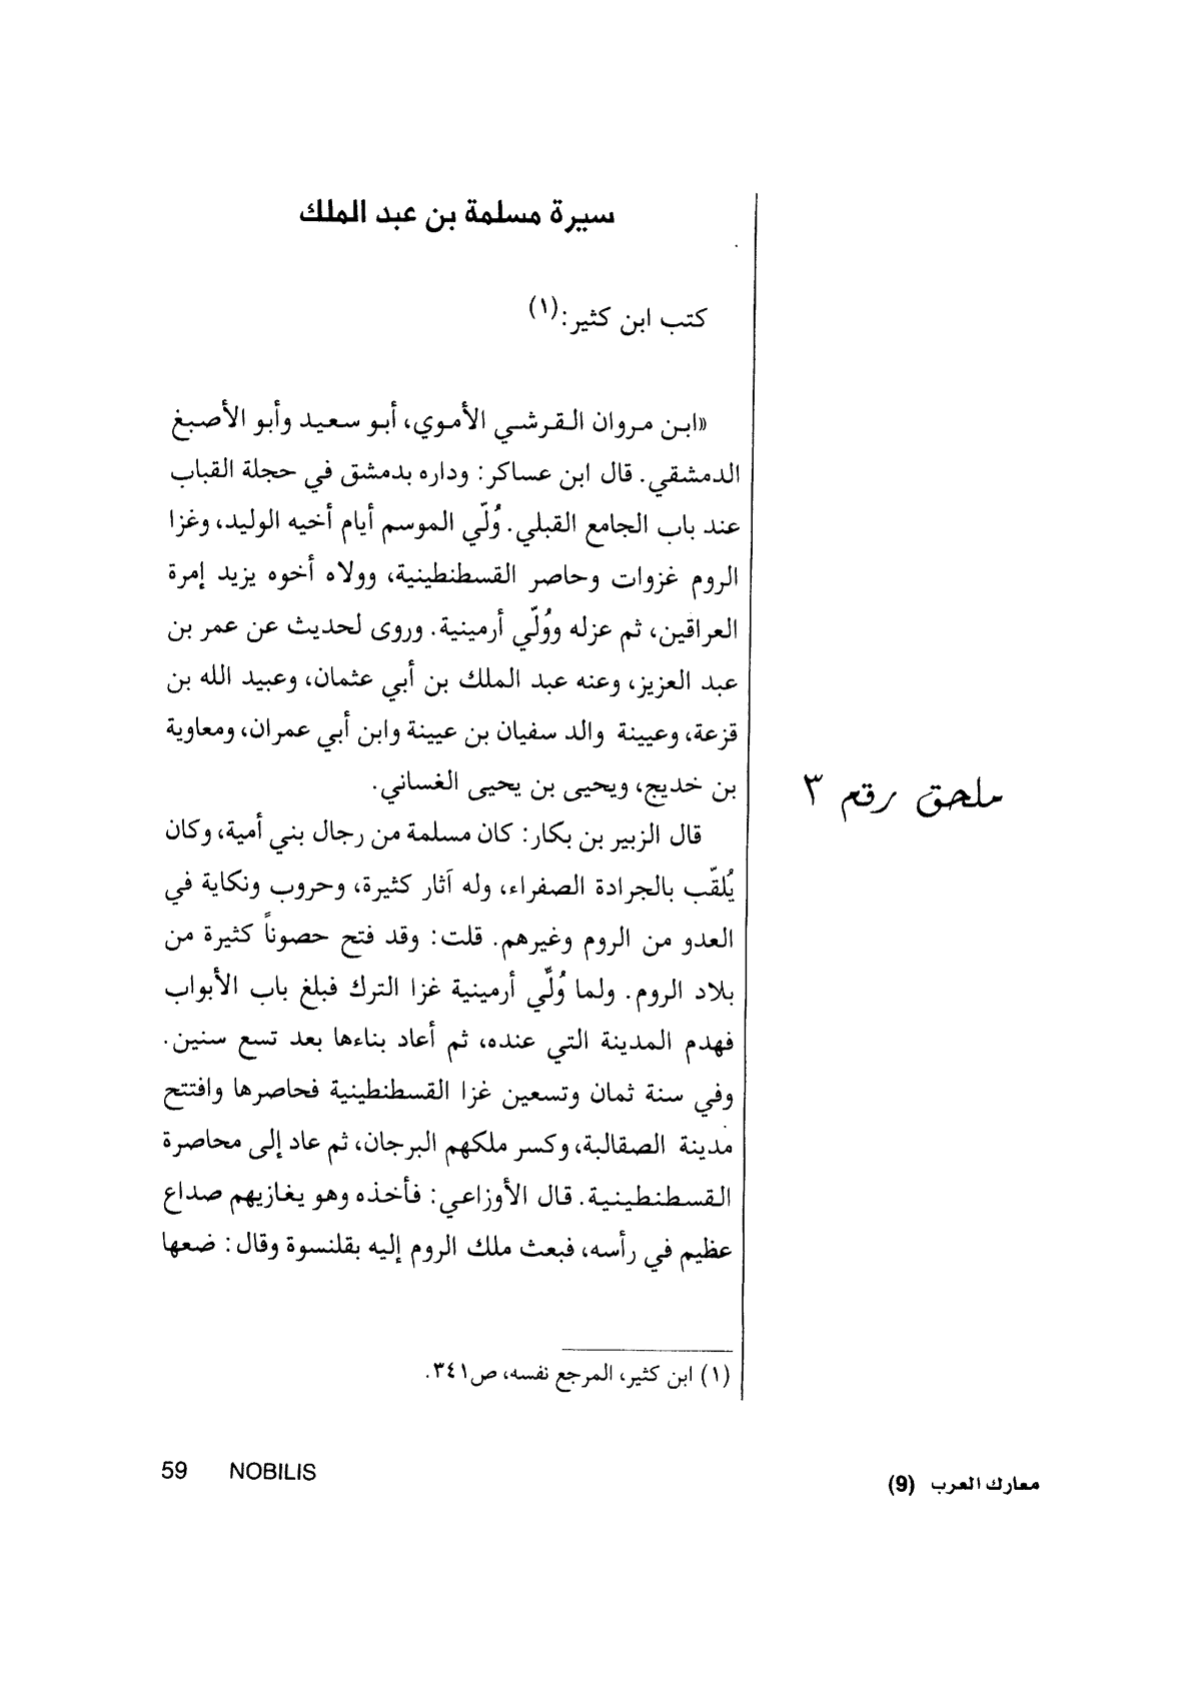 سيرة مسلمة بن عبد الملك
كتب ابن كثير:(١)
«ابن مروان القرشي الأموي، أبو سعيد وأبو الأصبغ
الدمشقي. قال ابن عساكر: وداره بدمشق في حجلة القباب
عند باب الجامع القبلي. وُلّي الموسم أيام أخيه الوليد، وغزا
الروم غزوات وحاصر القسطنطينية، وولاه أخوه يزيد إمرة
العراقين، ثم عزله ووُلّي أرمينية. وروى لحديث عن عمر بن
عبد العزيز، وعنه عبد الملك بن أبي عثمان، وعبيد الله بن
قزعة، وعيينة والد سفيان بن عيينة وابن أبي عمران، ومعاوية
بن خديج، ويحيى بن يحيى الغساني.
قال الزبير بن بكار: كان مسلمة من رجال بني أمية، وكان
يُلقّب بالجرادة الصفراء، وله آثار كثيرة، وحروب ونكاية في
العدو من الروم وغيرهم. قلت: وقد فتح حصوناً كثيرة من
بلاد الروم. ولما وُلّي أرمينية غزا الترك فبلغ باب الأبواب
فهدم المدينة التي عنده، ثم أعاد بناءها بعد تسع سنين.
وفي سنة ثمان وتسعين غزا القسطنطينية فحاصرها وافتتح
مدينة الصقالبة، وكسر ملكهم البرجان، ثم عاد إلى محاصرة
القسطنطينية. قال الأوزاعي: فأخذه وهو يغازيهم صداع
عظيم في رأسه، فبعث ملك الروم إليه بقلنسوة وقال: ضعها
ملحق رقم ٣
(١) ابن كثير، المرجع نفسه، ص٣٤١.
معارك العرب (9)
59 NOBILIS